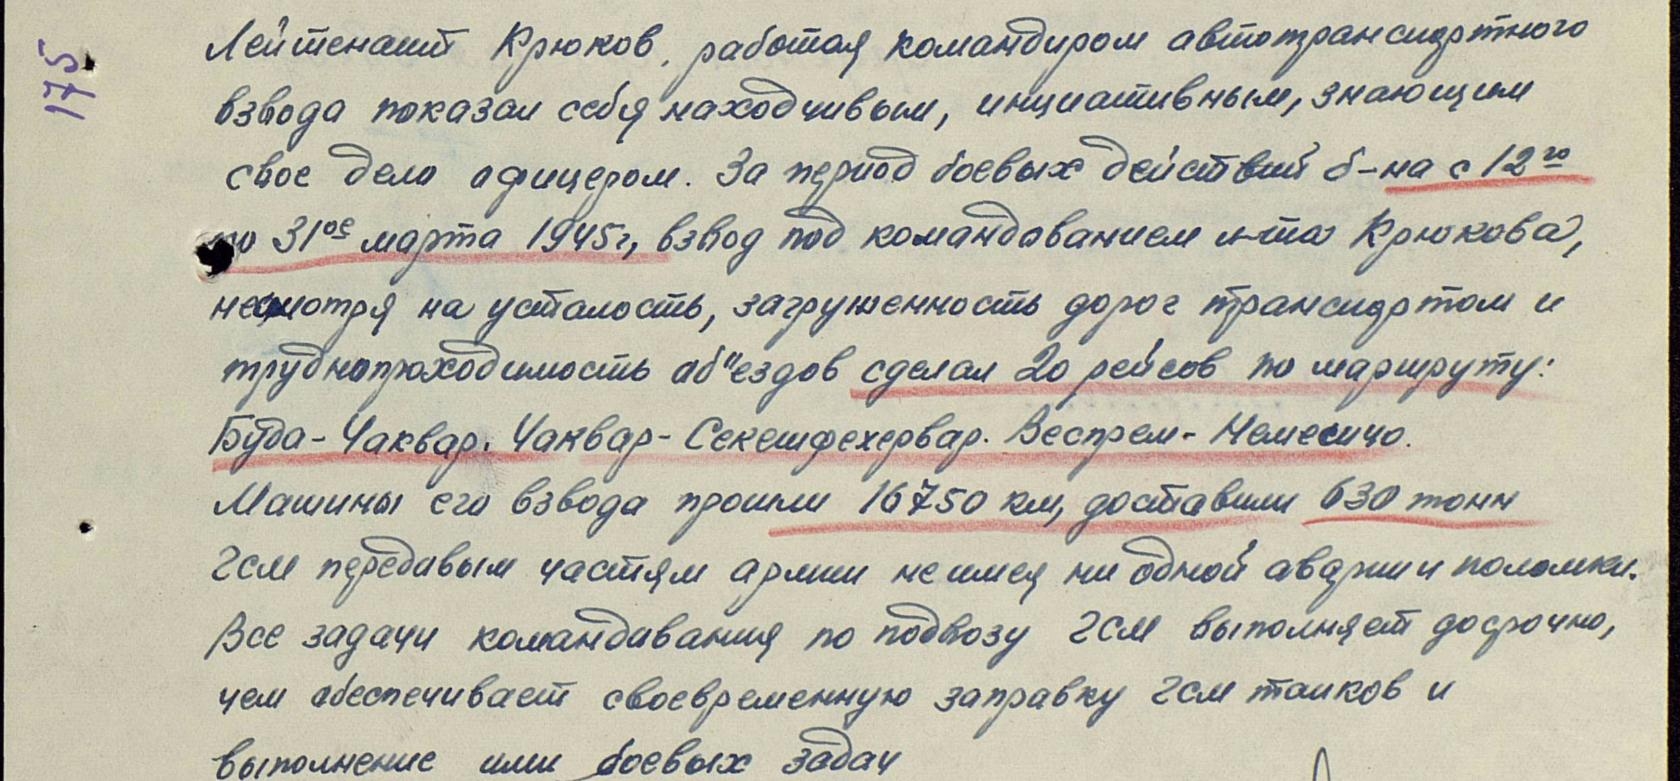 175
Лейтенант Крюков, работая командиром автотранспортного
взвода показал себя находчивым, инциативным, знающим
свое дело офицером. За период боевых действий б-на с 12го
по 31ое марта 1945г, взвод под командованием л-та Крюкова,
несмотря на усталость, загруженность дорог транспортом и
труднопроходимость об"ездов сделал 20 рейсов по маршруту:
Буда - Чаквар. Чаквар - Секешфехервар. Веспрем - Немесичо.
Машины его взвода прошли 16750 км, доставили 630 тонн
гсм передовым частям армии не имея ни одной аварии и поломки.
Все задачи командования по подвозу гсм выполняет досрочно,
чем обеспечивает своевременную заправку гсм танков и
выполнение ими боевых задач